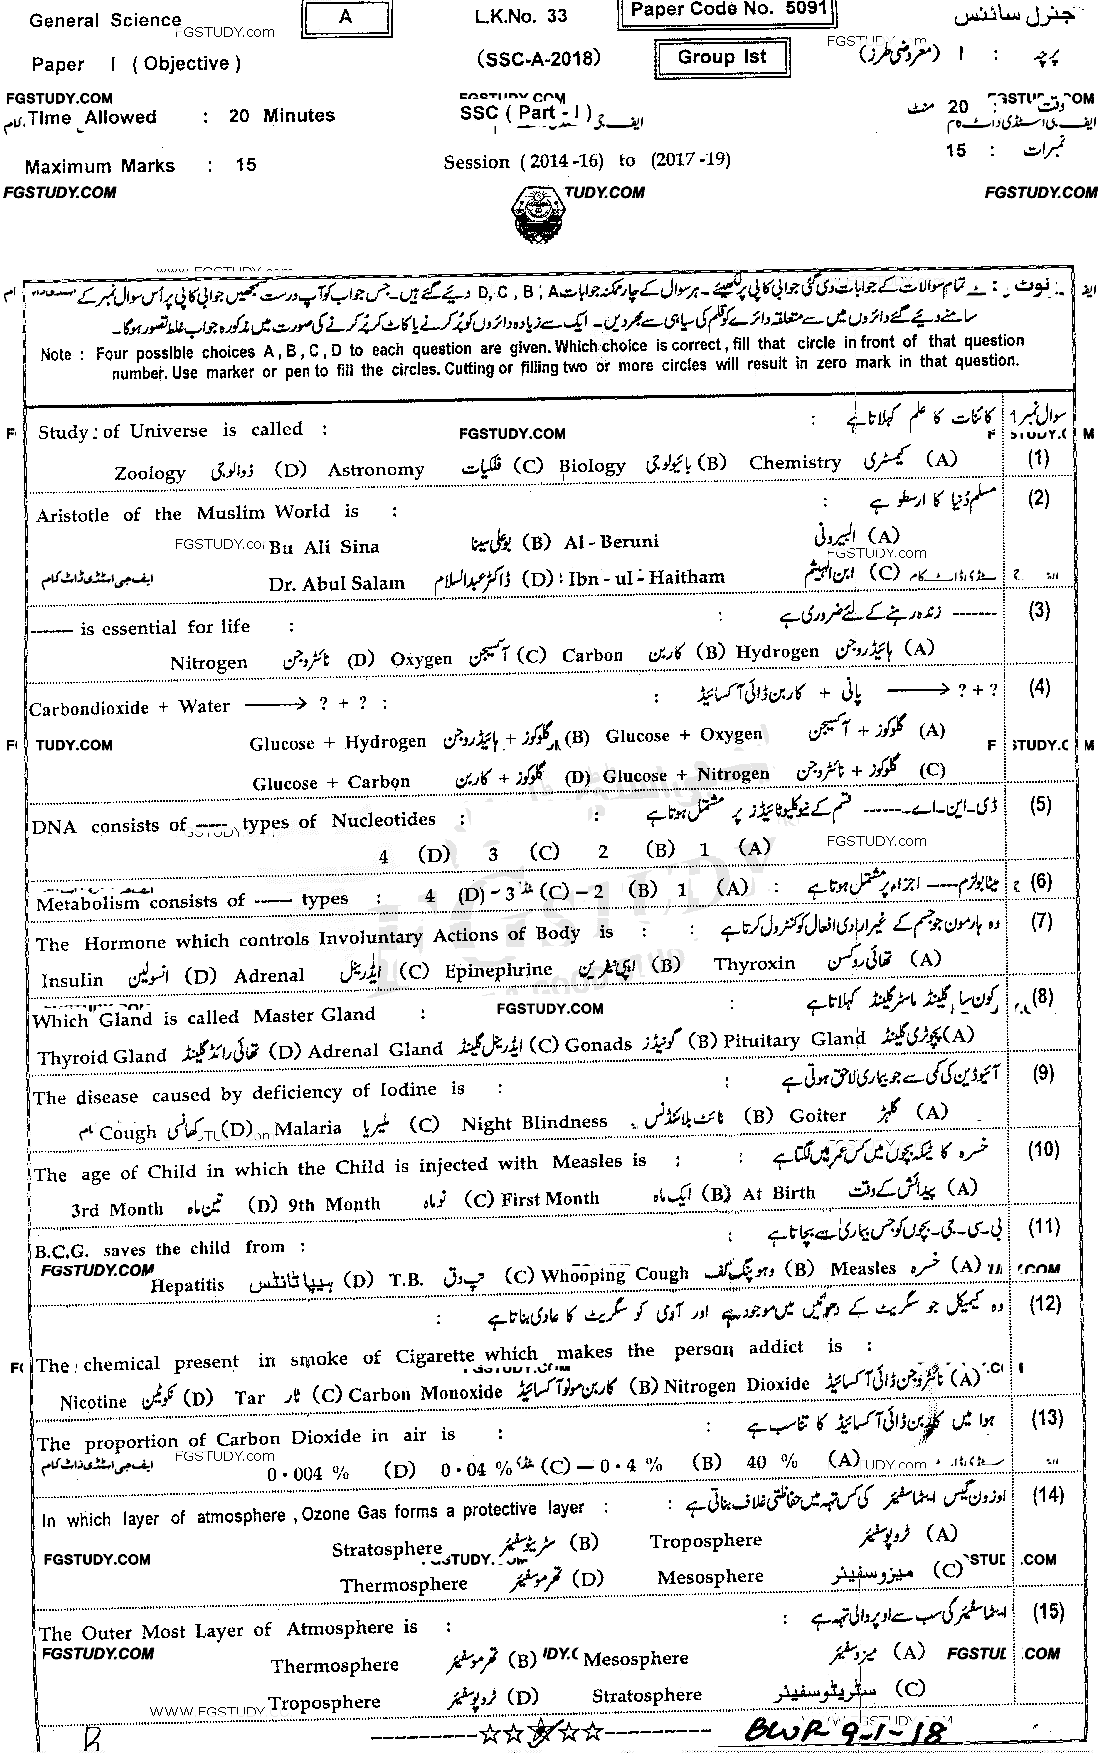 General Science A L.K.No. 33 Paper Code No. 5091 جنرل سائنس
FGSTUDY.com
Paper I (Objective) (SSC-A-2018) Group Ist پرچہ : I (معروضی طرز)
FGSTUDY.COM
Time Allowed : 20 Minutes SSC (Part - I) وقت 20 منٹ
Maximum Marks : 15 Session (2014-16) to (2017-19) نمبرات : 15
FGSTUDY.COM TUDY.COM FGSTUDY.COM
www.FGSTUDY.com
نوٹ :۔ تمام سوالات کے جوابات دی گئی جوابی کاپی پر لکھیئے۔ ہر سوال کے چار ممکنہ جوابات D, C, B, A دیئے گئے ہیں۔ جس جواب کو آپ درست سمجھیں جوابی کاپی پر اُس سوال نمبر کے
سامنے دیئے گئے دائروں میں سے متعلقہ دائرے کو قلم کی سیاہی سے بھر دیں۔ ایک سے زیادہ دائروں کو پُر کرنے یا کاٹ کر پُر کرنے کی صورت میں مذکورہ جواب غلط تصور ہوگا۔
Note : Four possible choices A, B, C, D to each question are given. Which choice is correct, fill that circle in front of that question
number. Use marker or pen to fill the circles. Cutting or filling two or more circles will result in zero mark in that question.
سوال نمبر 1 کائنات کا علم کہلاتا ہے :
Study of Universe is called : FGSTUDY.COM
(1) Zoology ذوالوجی (D) Astronomy فلکیات (C) Biology بائیولوجی (B) Chemistry کیمسٹری (A)
(2) مسلم دُنیا کا ارسطو ہے :
Aristotle of the Muslim World is :
Bu Ali Sina بوعلی سینا (B) Al-Beruni البیرونی (A)
FGSTUDY.com
ایف جی اسٹڈی ڈاٹ کام Dr. Abul Salam ڈاکٹر عبدالسلام (D) Ibn-ul-Haitham ابن الہیثم (C)
(3) ------ زندہ رہنے کے لئے ضروری ہے :
------ is essential for life :
Nitrogen نائٹروجن (D) Oxygen آکسیجن (C) Carbon کاربن (B) Hydrogen ہائیڈروجن (A)
(4) پانی + کاربن ڈائی آکسائیڈ ⟶ ? + ? :
Carbondioxide + Water ⟶ ? + ? :
Glucose + Hydrogen گلوکوز + ہائیڈروجن (B) Glucose + Oxygen گلوکوز + آکسیجن (A)
TUDY.COM
Glucose + Carbon گلوکوز + کاربن (D) Glucose + Nitrogen گلوکوز + نائٹروجن (C)
(5) ڈی۔این۔اے۔------ قسم کے نیوکلیوٹائیڈز پر مشتمل ہوتا ہے :
DNA consists of ------ types of Nucleotides : FGSTUDY.com
4 (D) 3 (C) 2 (B) 1 (A)
(6) میٹابولزم ---- اجزاء پر مشتمل ہوتا ہے :
Metabolism consists of ---- types : 4 (D) 3 (C) 2 (B) 1 (A)
(7) وہ ہارمون جو جسم کے غیر ارادی افعال کو کنٹرول کرتا ہے :
The Hormone which controls Involuntary Actions of Body is :
Insulin انسولین (D) Adrenal ایڈرینل (C) Epinephrine ایپی نیفرین (B) Thyroxin تھائی روکسن (A)
(8) کون سا گلینڈ ماسٹر گلینڈ کہلاتا ہے :
Which Gland is called Master Gland : FGSTUDY.COM
Thyroid Gland تھائی رائڈ گلینڈ (D) Adrenal Gland ایڈرینل گلینڈ (C) Gonads گونیڈز (B) Pituitary Gland پچوٹری گلینڈ (A)
(9) آئیوڈین کی کمی سے جو بیماری لاحق ہوتی ہے :
The disease caused by deficiency of Iodine is :
Cough کھانسی (D) Malaria ملیریا (C) Night Blindness نائٹ بلائنڈنس (B) Goiter گلہڑ (A)
(10) خسرہ کا ٹیکہ بچوں میں کس عمر میں لگتا ہے :
The age of Child in which the Child is injected with Measles is :
3rd Month تین ماہ (D) 9th Month نو ماہ (C) First Month ایک ماہ (B) At Birth پیدائش کے وقت (A)
(11) بی۔سی۔جی۔ بچوں کو جس بیماری سے بچاتا ہے :
B.C.G. saves the child from :
FGSTUDY.COM
Hepatitis ہیپاٹائٹس (D) T.B. تپ دق (C) Whooping Cough وہوپنگ کف (B) Measles خسرہ (A)
(12) وہ کیمیکل جو سگریٹ کے دھوئیں میں موجود ہے اور آدمی کو سگریٹ کا عادی بناتا ہے :
The chemical present in smoke of Cigarette which makes the person addict is :
Nicotine نکوٹین (D) Tar ٹار (C) Carbon Monoxide کاربن مونو آکسائیڈ (B) Nitrogen Dioxide نائٹروجن ڈائی آکسائیڈ (A)
(13) ہوا میں کاربن ڈائی آکسائیڈ کا تناسب ہے :
The proportion of Carbon Dioxide in air is :
FGSTUDY.com
ایف جی اسٹڈی ڈاٹ کام 0.004 % (D) 0.04 % (C) 0.4 % (B) 40 % (A)
(14) اوزون گیس ایٹماسفیئر کی کس تہہ میں حفاظتی غلاف بناتی ہے :
In which layer of atmosphere, Ozone Gas forms a protective layer :
Stratosphere سٹریٹوسفیئر (B) Troposphere ٹروپوسفیئر (A)
FGSTUDY.COM
Thermosphere تھرموسفیئر (D) Mesosphere میزوسفیئر (C)
(15) ایٹماسفیئر کی سب سے اوپر والی تہہ ہے :
The Outer Most Layer of Atmosphere is :
FGSTUDY.COM Thermosphere تھرموسفیئر (B) Mesosphere میزوسفیئر (A)
Troposphere ٹروپوسفیئر (D) Stratosphere سٹریٹوسفیئر (C)
WWW.FGSTUDY
BWR 9-1-18